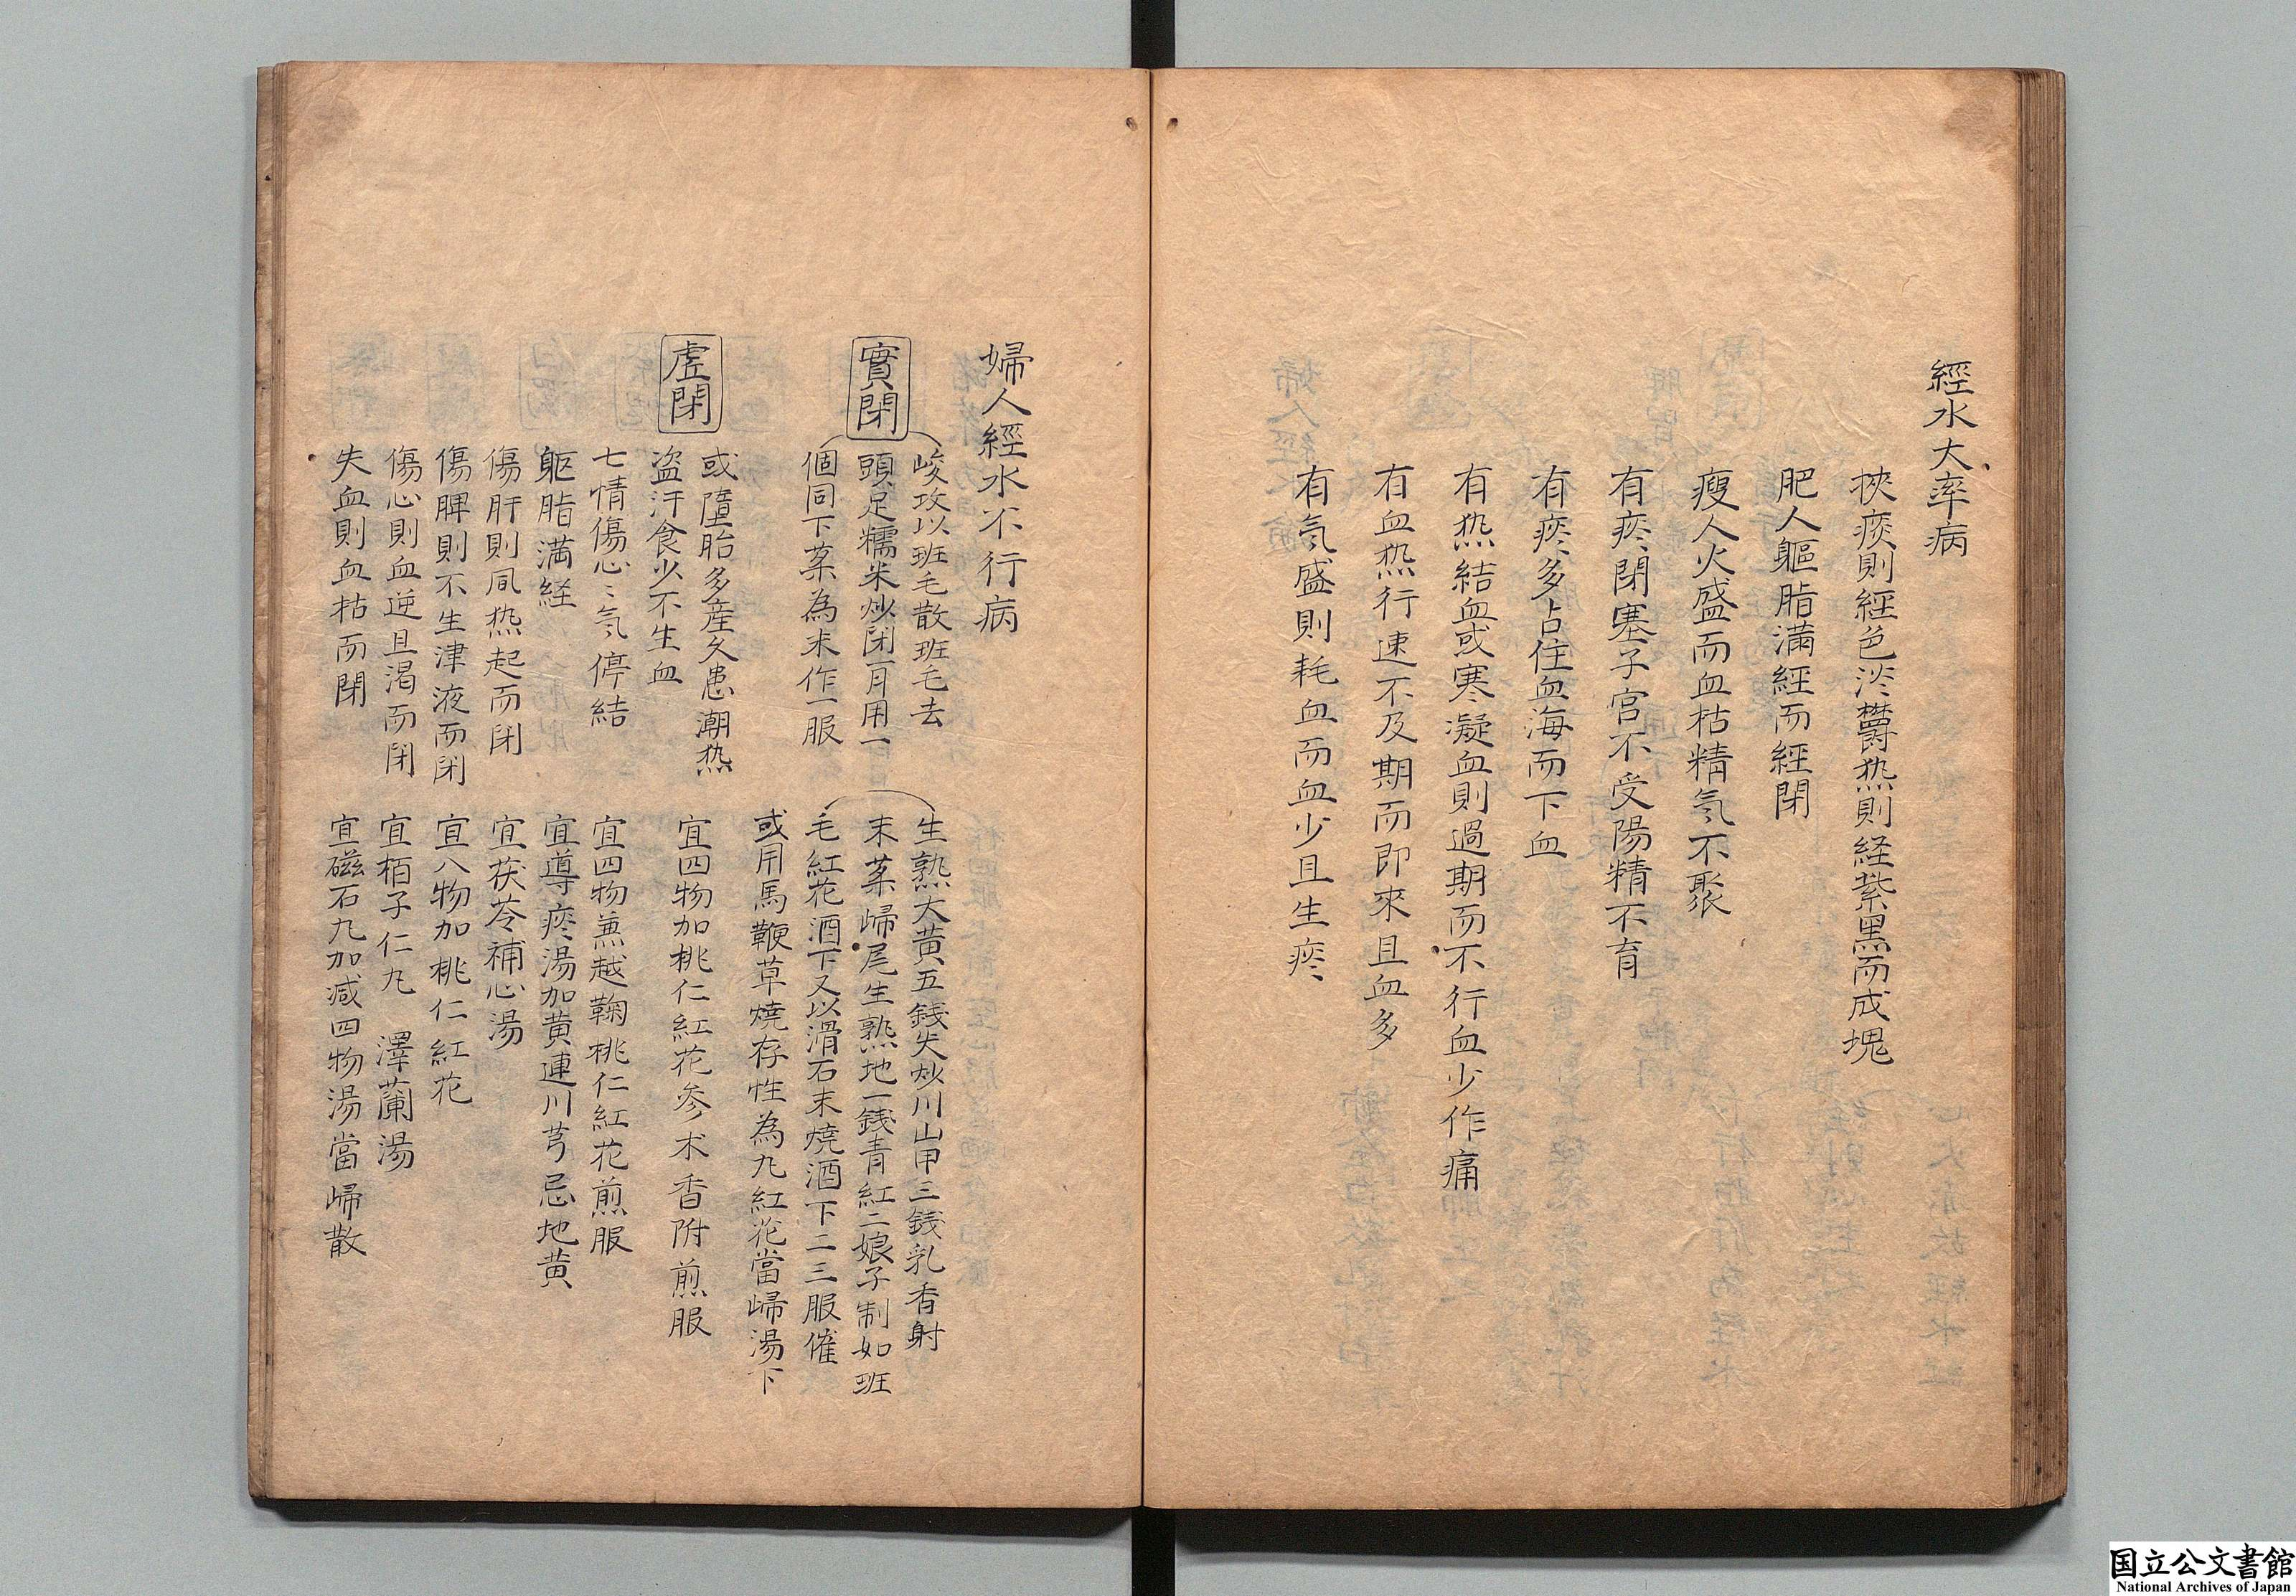 經水大率病
挾痰則經色淡欝热則経紫黒而成塊
肥人軀脂滿經而經閉
瘦人火盛而血枯精氣不聚
有痰閉塞子宮不受陽精不育
有痰多占住血海而下血
有热結血或寒凝血則過期而不行血少作痛
有血热行速不及期而即來且血多
有氣盛則耗血而血少且生痰
婦人經水不行病
實閉
峻攻以班毛散班毛去
頭足糯米炒閉一月用一
個同下藥為末作一服
生熟大黄五銭失炒川山甲三銭乳香射
末藥歸尾生熟地一銭青紅二娘子制如班
毛紅花酒下又以滑石末燒酒下二三服催
或用馬鞭草燒存性為丸紅花當歸湯下
虚閉
或墮胎多産久患潮热
盗汗食少不生血
宜四物加桃仁紅花参术香附煎服
七情傷心〻氣停結
宜四物兼越鞠桃仁紅花煎服
躯脂満経
宜導痰湯加黄連川芎忌地黄
傷肝則風热起而閉
宜茯苓補心湯
傷脾則不生津液而閉
宜八物加桃仁紅花
傷心則血逆且渴而閉
宜栢子仁丸 澤蘭湯
失血則血枯而閉
宜磁石丸加减四物湯當歸散
国立公文書館
National Archives of Japan